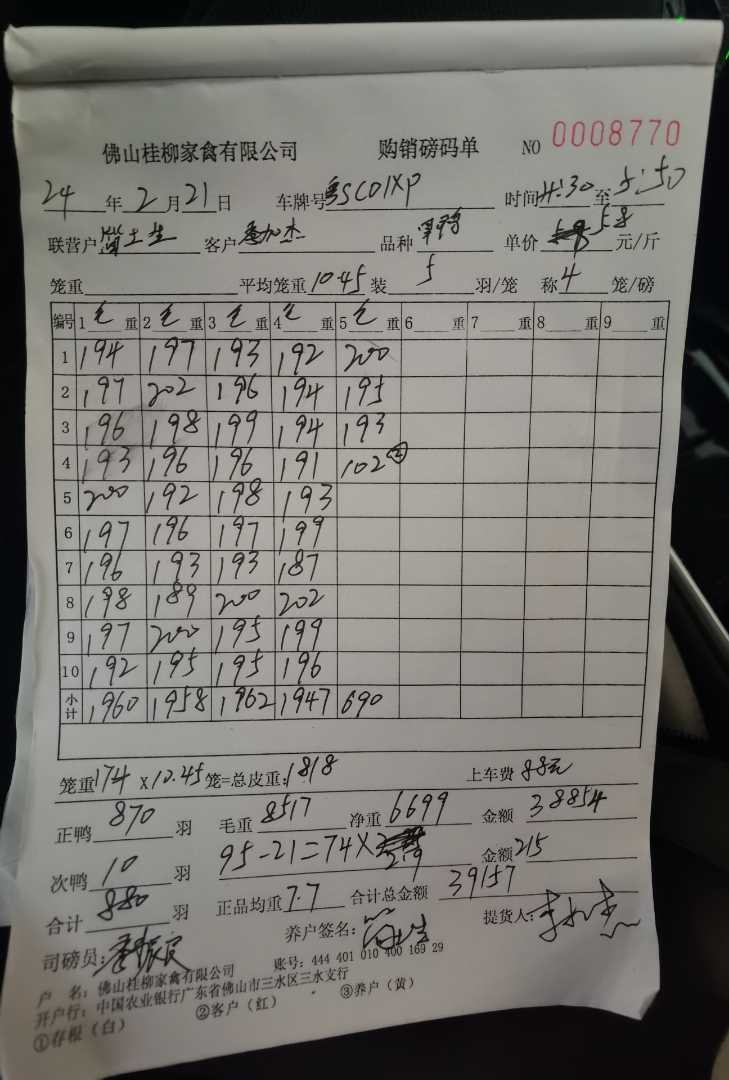 佛山桂柳家禽有限公司 购销磅码单 NO 0008770
24年2月21日 车牌号粤SC01XP 时间4:30至5:50
联营户 客户 品种 单价 5.8 元/斤
笼重 平均笼重10.45装5羽/笼 称4笼/磅
编号 1毛重 2毛重 3毛重 4毛重 5毛重 6重 7重 8重 9重
1 194 197 193 192 200
2 197 202 196 194 195
3 196 198 199 194 193
4 193 196 196 191 102②
5 200 192 198 193
6 197 196 197 199
7 196 193 193 187
8 198 189 200 202
9 197 200 195 199
10 192 195 195 196
小计 1960 1958 1962 1947 690
笼重174×10.45笼=总皮重:1818 上车费88元
正鸭870羽 毛重8517 净重6699 金额38854
次鸭10羽 95-21=74×2.9 金额215
合计880羽 正品均重7.7 合计总金额39157
司磅员: 养户签名: 提货人:
户 名：佛山桂柳家禽有限公司 账号：444 401 010 400 169 29
开户行：中国农业银行广东省佛山市三水区三水支行
①存根（白） ②客户（红） ③养户（黄）